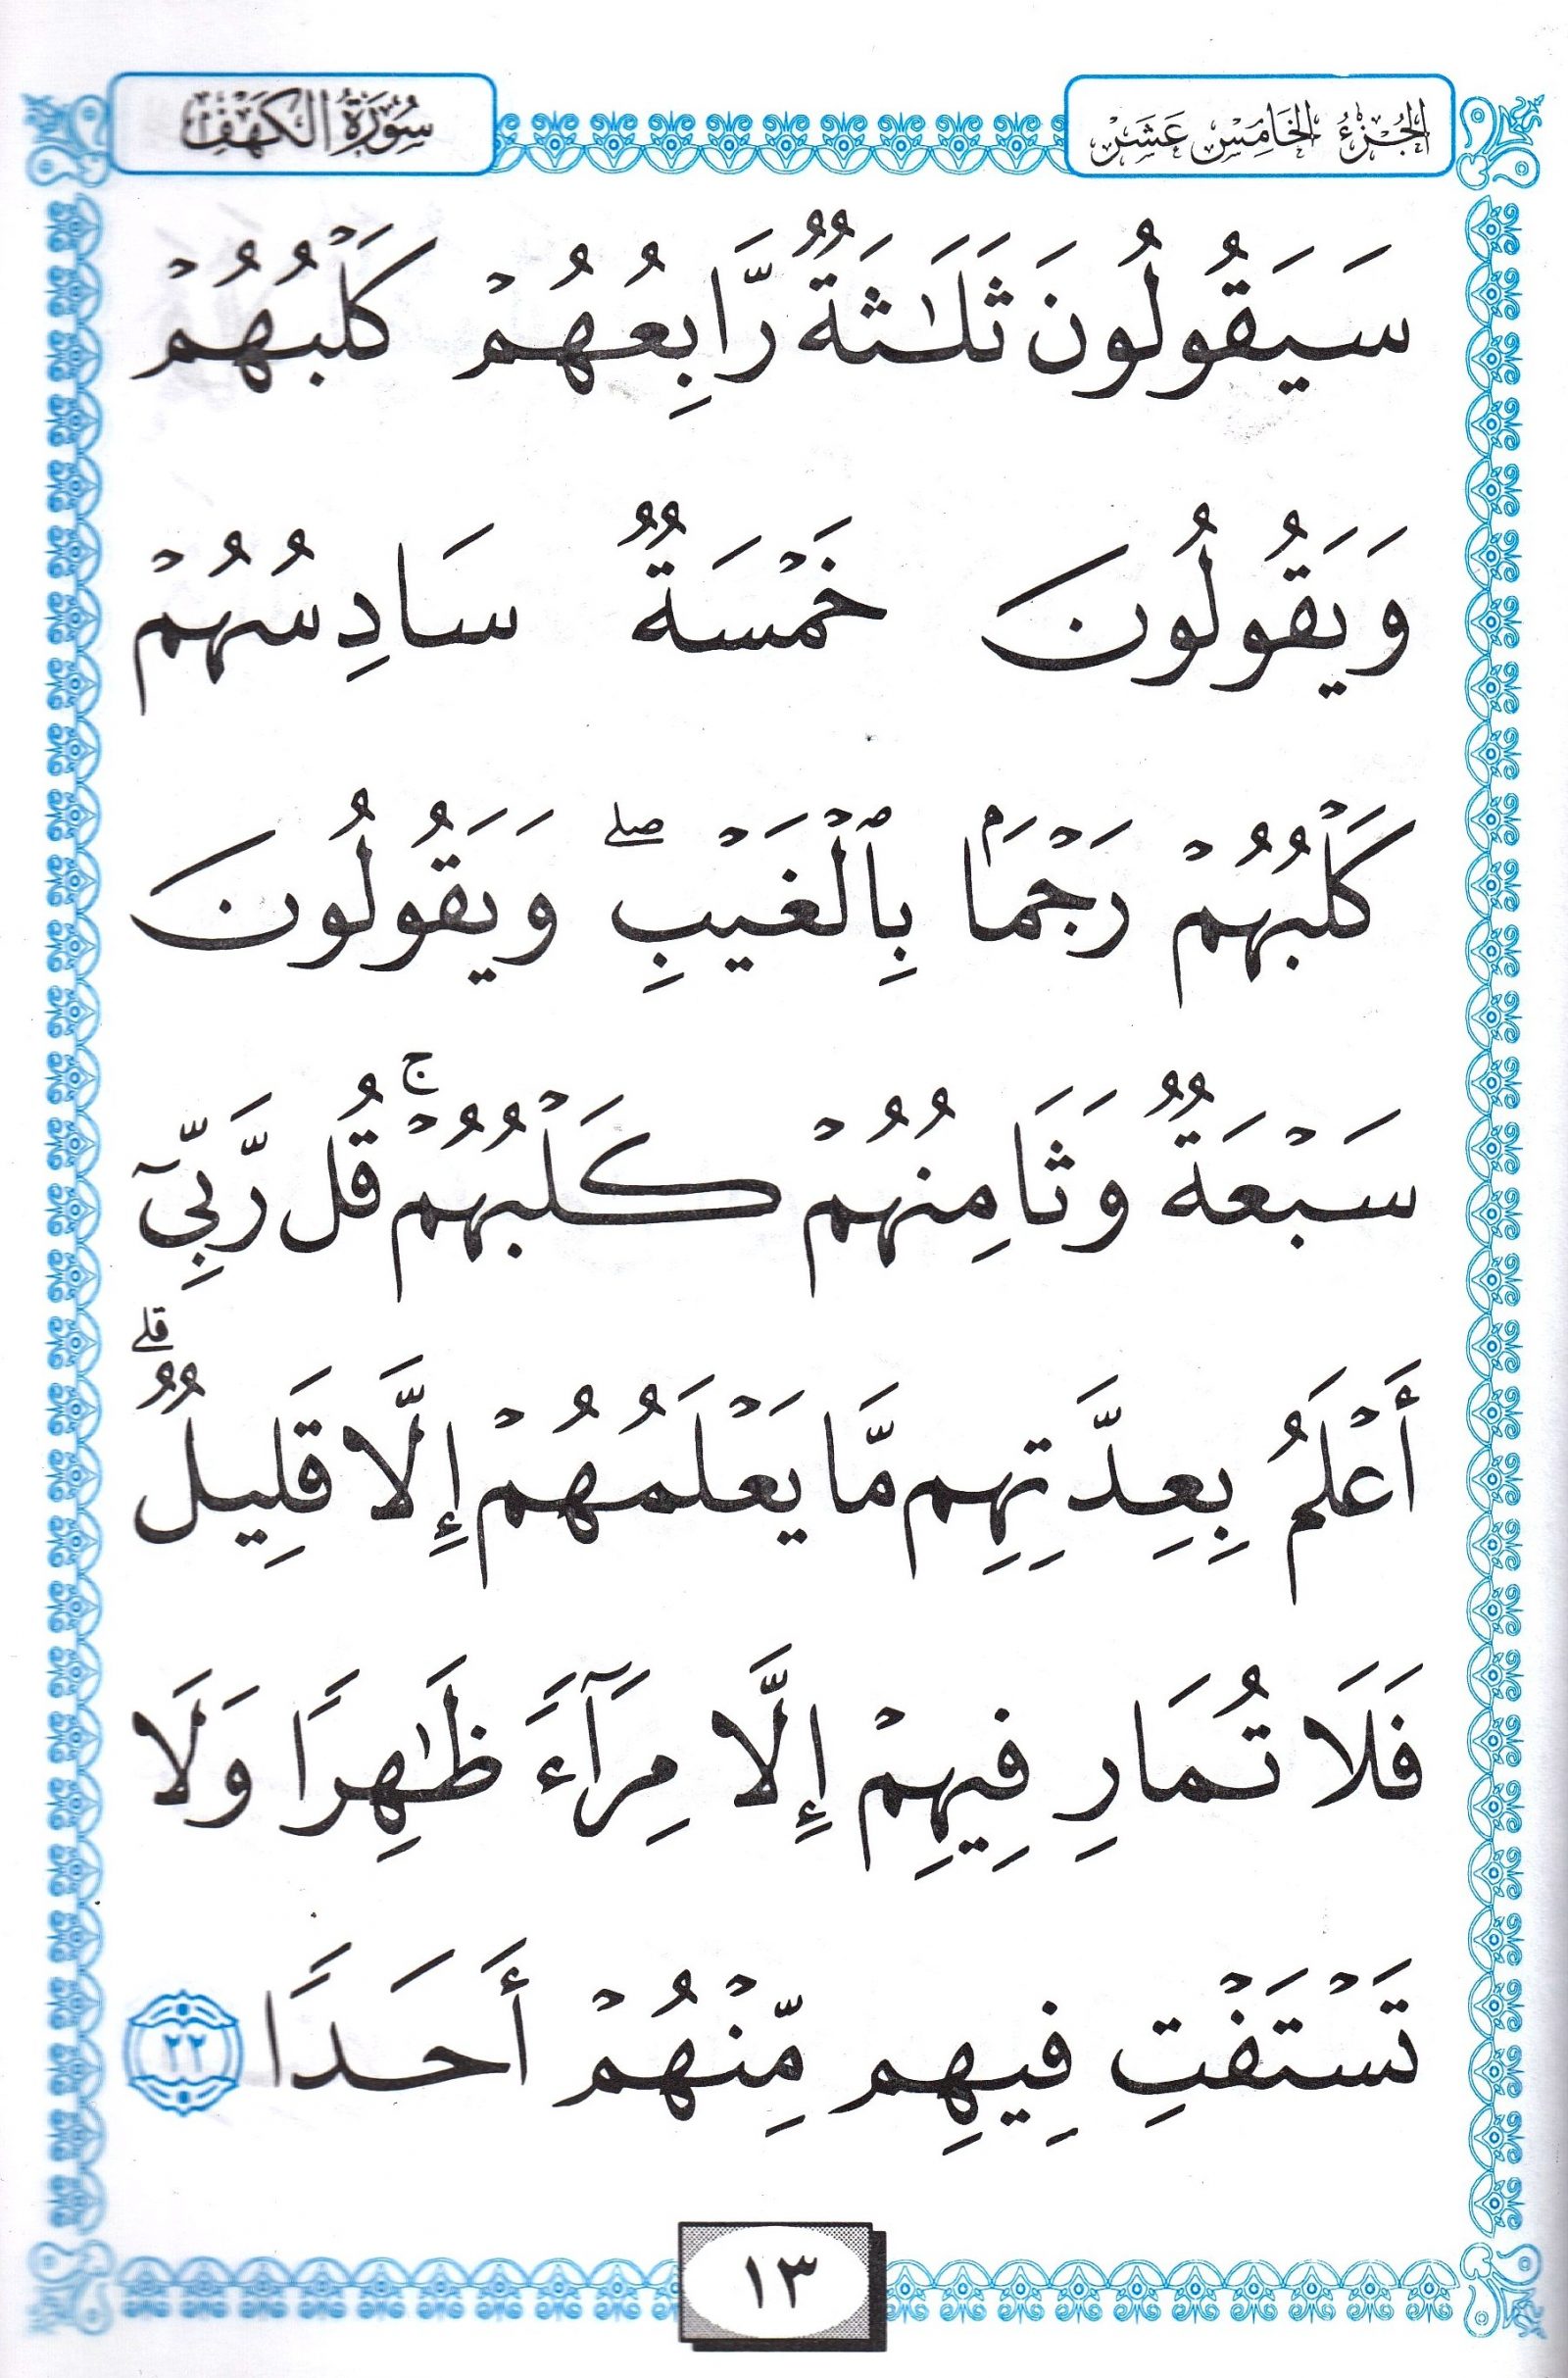 الجُزْءُ الخَامِسْ عَشَرْ
سُورَةُ الكَهْفِ
سَيَقُولُونَ ثَلَـٰثَةٌ رَّابِعُهُمْ كَلْبُهُمْ
وَيَقُولُونَ خَمْسَةٌ سَادِسُهُمْ
كَلْبُهُمْ رَجْمَۢا بِٱلْغَيْبِ ۖ وَيَقُولُونَ
سَبْعَةٌ وَثَامِنُهُمْ كَلْبُهُمْ ۚ قُل رَّبِّىٓ
أَعْلَمُ بِعِدَّتِهِم مَّا يَعْلَمُهُمْ إِلَّا قَلِيلٌ ۗ
فَلَا تُمَارِ فِيهِمْ إِلَّا مِرَآءً ظَـٰهِرًا وَلَا
تَسْتَفْتِ فِيهِم مِّنْهُمْ أَحَدًا ٢٢
١٣